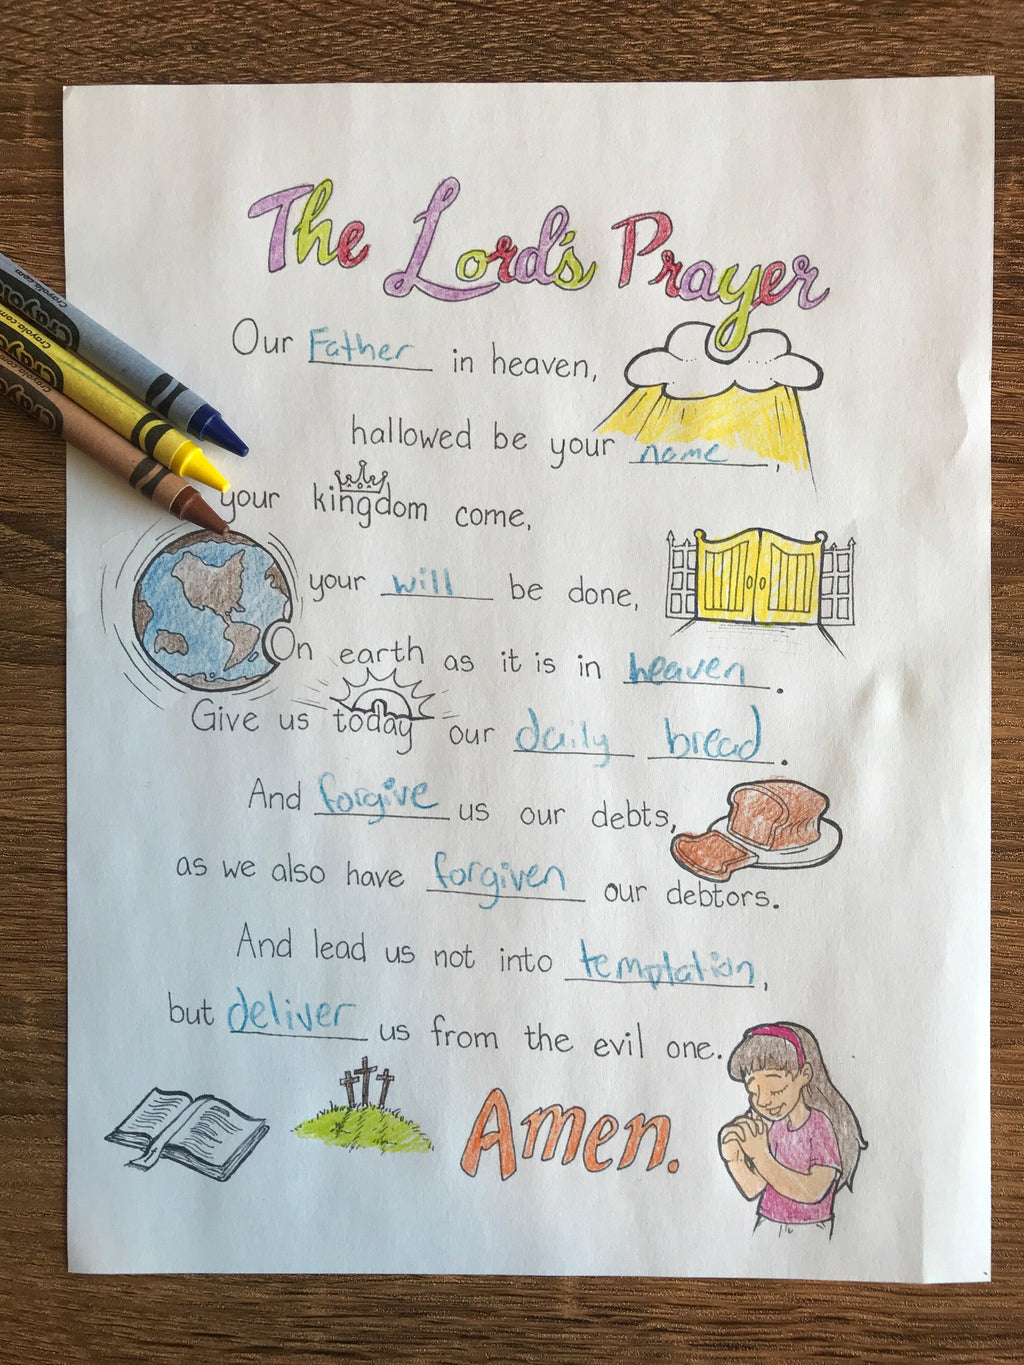 The Lord's Prayer
Our Father in heaven,
hallowed be your name,
your kingdom come,
your will be done,
On earth as it is in heaven.
Give us today our daily bread.
And forgive us our debts,
as we also have forgiven our debtors.
And lead us not into temptation,
but deliver us from the evil one.
Amen.
Crayola.com
Crayola.com